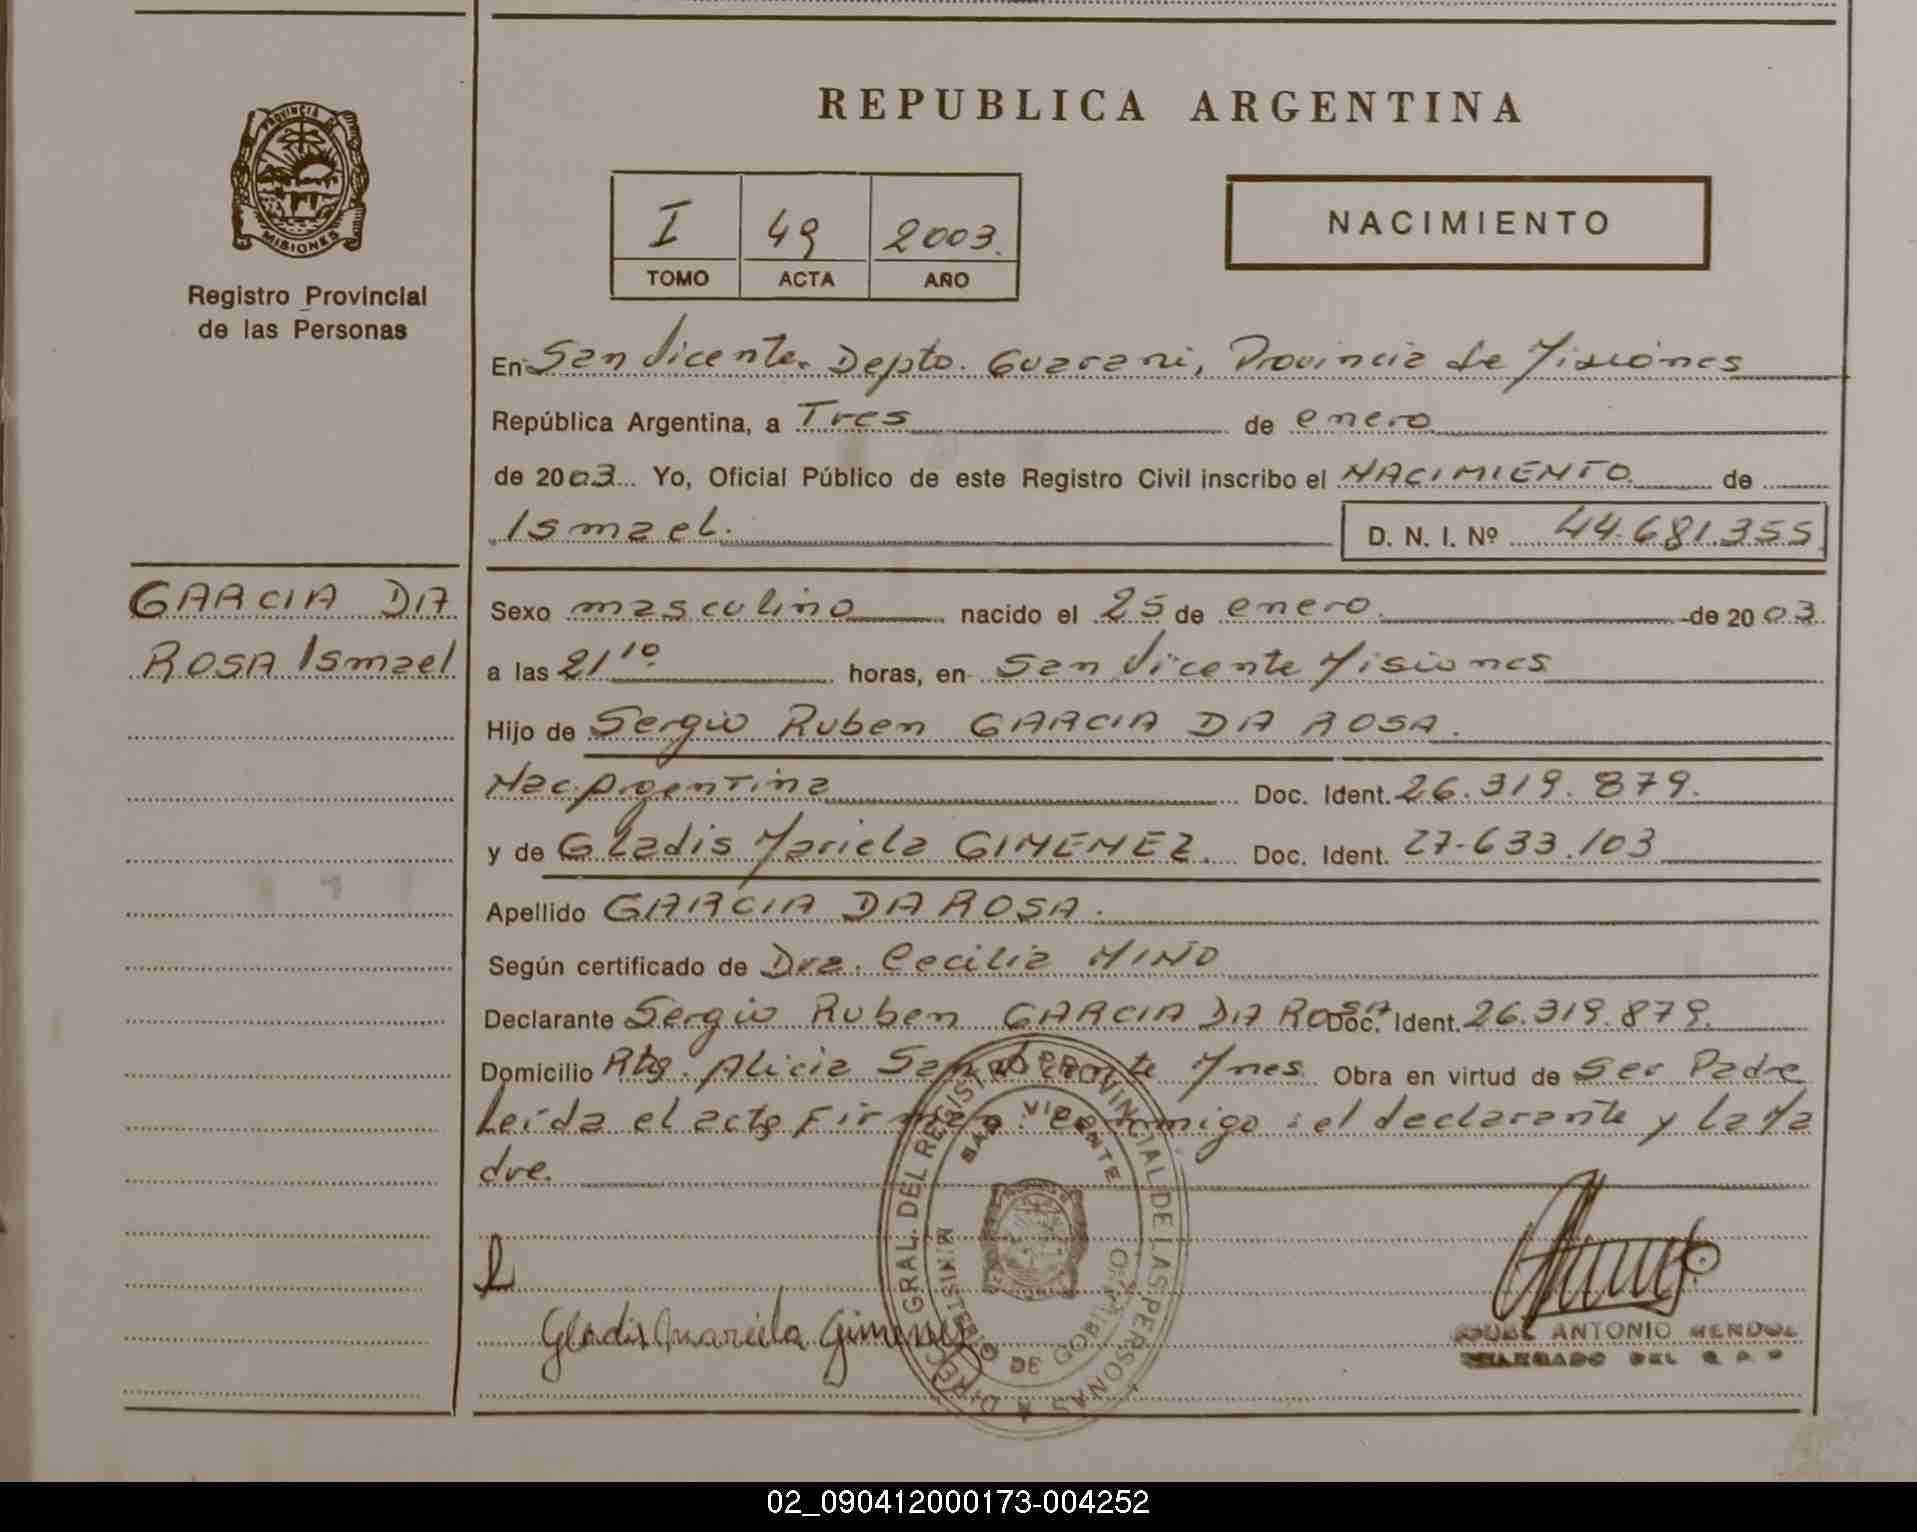 REPUBLICA ARGENTINA
PROVINCIA DE
MISIONES
Registro Provincial
de las Personas
I 49 2003.
TOMO ACTA AÑO
NACIMIENTO
En San Vicente. Depto. Guarani, Provincia de Misiones
República Argentina, a Tres de enero
de 2003 Yo, Oficial Público de este Registro Civil inscribo el NACIMIENTO de
Ismael. D. N. I. Nº 44.681.355
GARCIA DA
ROSA Ismael
Sexo masculino nacido el 25 de enero. de 2003.
a las 21 10. horas, en San Vicente Misiones
Hijo de Sergio Ruben GARCIA DA ROSA.
Nac. Argentina Doc. Ident. 26.319.879.
y de Gladis Mariela GIMENEZ. Doc. Ident. 27-633.103
Apellido GARCIA DA ROSA.
Según certificado de Dra. Cecilia MIÑO
Declarante Sergio Ruben GARCIA DA ROSA Doc. Ident. 26.319.879.
Domicilio Alicia San Vicente Mnes. Obra en virtud de Ser Padre
Leida el acta Firman conmigo: el declarante y la Ma
dre.
DIREC. GRAL. DEL REGISTRO PROVINCIAL DE LAS PERSONAS
SAN VICENTE
MINISTERIO DE GOBIERNO
Gladis Mariela Gimenez
ANTONIO
DEL R P P
02_090412000173-004252